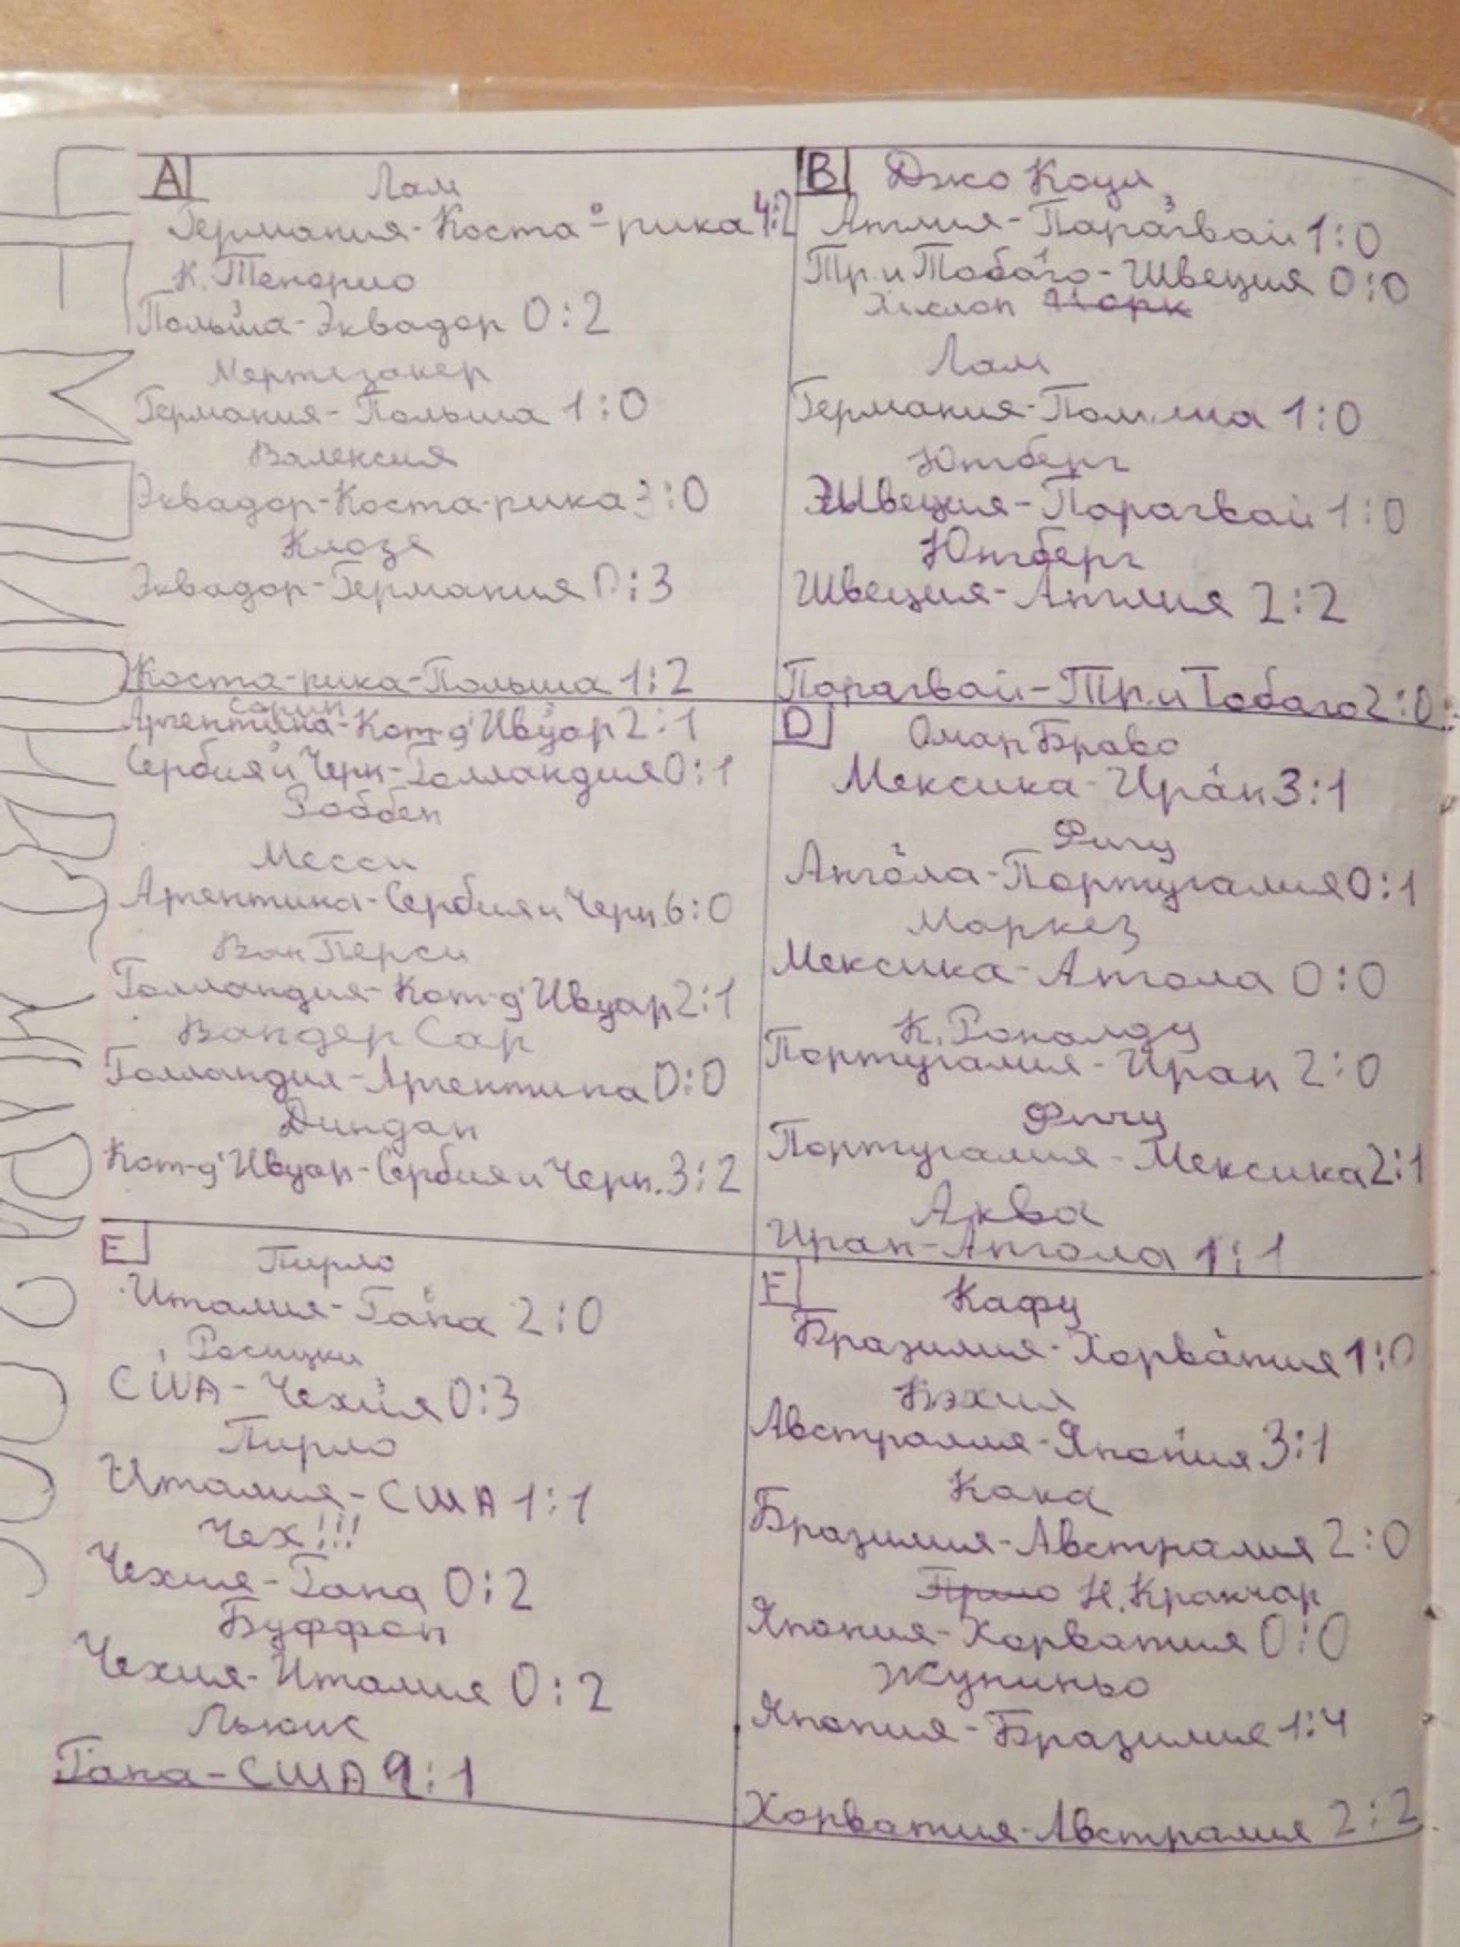 A
Лам
Германия-Коста-рика 4:2
К. Тенорио
Польша-Эквадор 0:2
Мертезакер
Германия-Польша 1:0
Валенсия
Эквадор-Коста-рика 3:0
Клозе
Эквадор-Германия 0:3
Коста-рика-Польша 1:2
B
Джо Коул
Англия-Парагвай 1:0
Тр. и Тобаго-Швеция 0:0
Хислоп Йорк
Лам
Германия-Польша 1:0
Юнгберг
Швеция-Парагвай 1:0
Юнгберг
Швеция-Англия 2:2
Парагвай-Тр. и Тобаго 2:0
Аргентина-Кот-д'Ивуар 2:1
Сербия и Черн-Голландия 0:1
Роббен
Месси
Аргентина-Сербия и Черн. 6:0
Ван Перси
Голландия-Кот-д'Ивуар 2:1
Ван дер Сар
Голландия-Аргентина 0:0
Диндан
Кот-д'Ивуар-Сербия и Черн. 3:2
D
Омар Браво
Мексика-Иран 3:1
Фигу
Ангола-Португалия 0:1
Маркез
Мексика-Ангола 0:0
К. Роналду
Португалия-Иран 2:0
Фигу
Португалия-Мексика 2:1
Аква
Иран-Ангола 1:1
E
Пирло
Италия-Гана 2:0
Росицки
США-Чехия 0:3
Пирло
Италия-США 1:1
Чех!!!
Чехия-Гана 0:2
Буффон
Чехия-Италия 0:2
Льюис
Гана-США :1
F
Кафу
Бразилия-Хорватия 1:0
Кэхил
Австралия-Япония 3:1
Кака
Бразилия-Австралия 2:0
Н. Кранчар
Япония-Хорватия 0:0
Жуниньо
Япония-Бразилия 1:4
Хорватия-Австралия 2:2